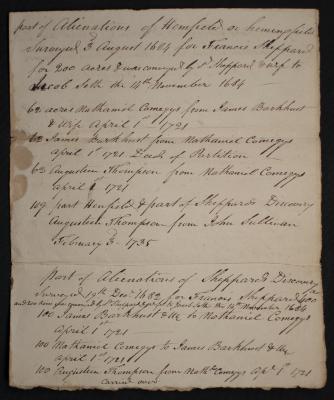 part of Alienations of Hemfield or hemingsfield
Surveyed 3 August 1684 for Francis Sheppard
for 200 acres & was conveyed by sd Sheppard & wife to
Jacob Seth the 14th November 1684 —
62 acres Nathaniel Comegys from James Barkhust
& Wife April 1st 1721
62 James Barkhust from Nathaniel Comegys
april 1st 1721 Deeds of Partition —
62 Augusteen Thompson from Nathaniel Comegys
april 1 1721
109 part Henfield & part of Sheppards Discovery
Augusteen Thompson from John Sullivan
February 3 - 1735
part of Alienations of Sheppards Discovery
Surveyed 19th Decr 1682 for Francis Sheppard 400
and was conveyed by sd Sheppard & wife to Jacob Seth the 14th November 1684
100 James Barkhust & Ux to Nathaniel Comegys
April 1st 1721
100 Nathaniel Comegys to James Barkhust & Ux
april 1st 1721
100 Augusteen Thompson from Nathl Comegys Apl 1st 1721
Carried over